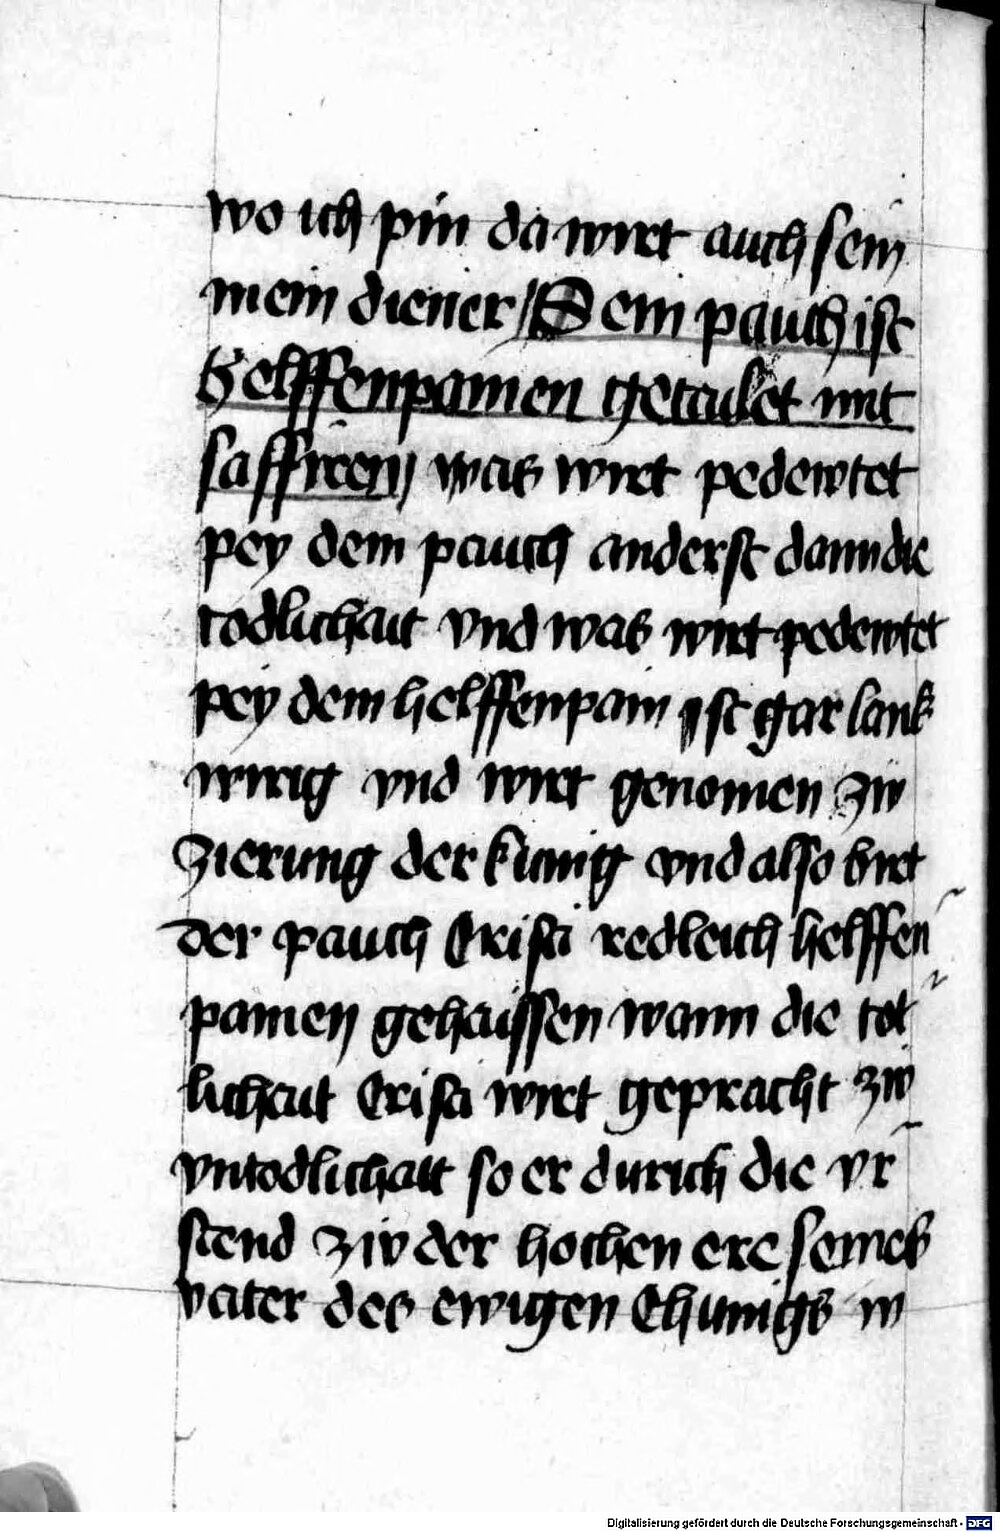 wo ich pin da wirt auch sein
mein diener // Sein pauch ist
helffenpainen getailet mit
saffiren was wirt pedewtet
pey dem pauch anderst dann die
todlichait vnd was wirt pedewtet
pey dem helffenpain ist gar lank
wirig vnd wirt genomen zw
zierung der kunig vnd also wirt
der pauch Cristi redleich helffen
painen gehaissen wann die tot
lichait Cristi wirt gepracht zw
vntodlichait so er durich die vr
stend zw der hochen ere seines
vater des ewigen Chunigs w
Digitalisierung gefördert durch die Deutsche Forschungsgemeinschaft - DFG